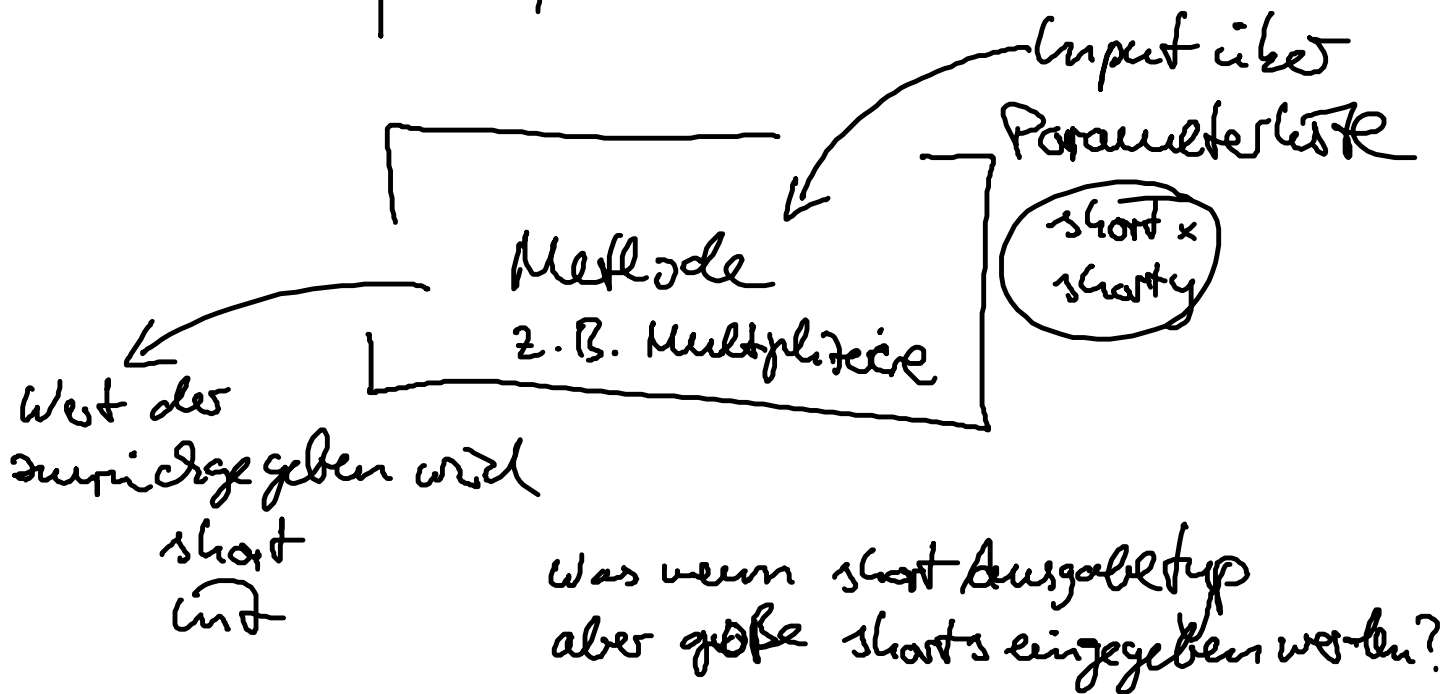 Input über
Parameterliste
short x
short y
Methode
z.B. Multipliziere
Wert der
zurückgegeben wird
short
int
Was wenn short Ausgabetyp
aber große shorts eingegeben werden?